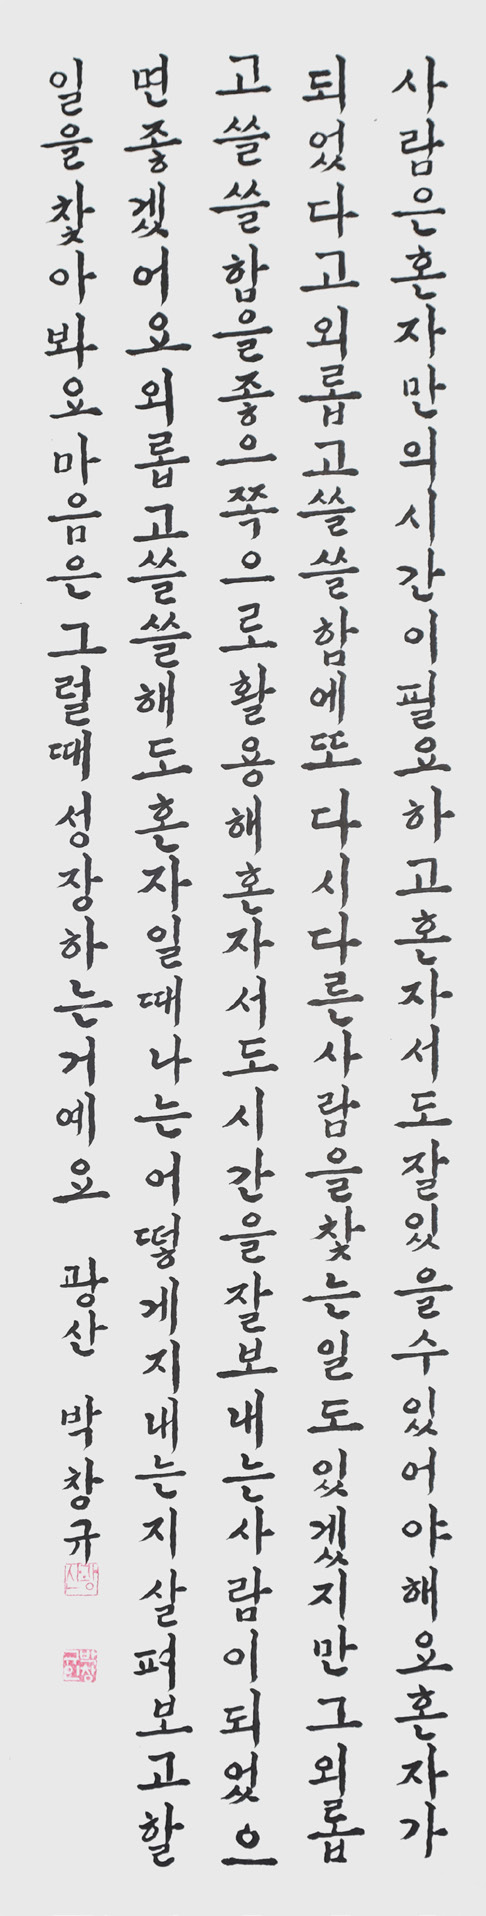 사람은혼자만의시간이필요하고혼자서도잘있을수있어야해요혼자가
되었다고외롭고쓸쓸함에또다시다른사람을찾는일도있겠지만그외롭
고쓸쓸함을좋으쪽으로활용해혼자서도시간을잘보내는사람이되었으
면좋겠어요외롭고쓸쓸해도혼자일때나는어떻게지내는지살펴보고할
일을찾아봐요마음은그럴때성장하는거예요 광산 박창규
광산
박창규인